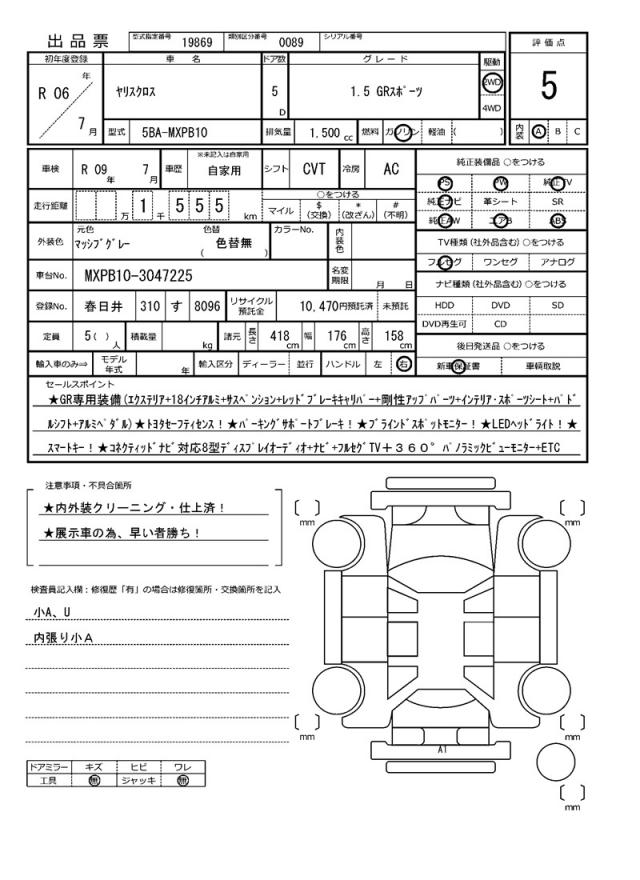 出品票
型式指定番号 19869 類別区分番号 0089 シリアル番号
評価点
5
内装 A B C
初年度登録 車名 ドア数 グレード 駆動
R 06 年 7 月
ヤリスクロス 5 D 1.5 GRスポーツ 2WD 4WD
型式 5BA-MXPB10 排気量 1.500 cc 燃料 ガソリン 軽油 ( )
車検 R 09 年 7 月 車歴 ※未記入は自家用 自家用 シフト CVT 冷房 AC
走行距離 万 1 千 5 5 5 km ○をつける マイル $ (交換) * (改ざん) # (不明)
外装色 元色 マッシブグレー 色替 ( 色替無 ) カラーNo. 内装色
車台No. MXPB10-3047225 名変期限 月 日
登録No. 春日井 310 す 8096 リサイクル預託金 10,470円預託済 未預託
定員 5( ) 人 積載量 kg 諸元 長さ 418 cm 幅 176 cm 高さ 158 cm
輸入車のみ⇒ モデル年式 年 輸入区分 ディーラー 並行 ハンドル 左 右
純正装備品 ○をつける
PS PW 純正TV
純正ナビ 革シート SR
純正AW エアB ABS
TV種類(社外品含む) ○をつける
フルセグ ワンセグ アナログ
ナビ種類(社外品含む) ○をつける
HDD DVD SD
DVD再生可 CD
後日発送品 ○をつける
新車保証書 車輌取説
セールスポイント
★GR専用装備(エクステリア+18インチアルミ+サスペンション+レッドブレーキキャリパー+剛性アップパーツ+インテリア・スポーツシート+パド
ルシフト+アルミペダル)★トヨタセーフティセンス!★パーキングサポートブレーキ!★ブラインドスポットモニター!★LEDヘッドライト!★
スマートキー!★コネクティッドナビ対応8型ディスプレイオーディオ+ナビ+フルセグTV+360°パノラミックビューモニター+ETC
注意事項・不具合箇所
★内外装クリーニング・仕上済!
★展示車の為、早い者勝ち!
検査員記入欄:修復歴「有」の場合は修復箇所・交換箇所を記入
小A、U
内張り小A
ドアミラー キズ ヒビ ワレ
工具 無 ジャッキ 無
mm
mm
mm
mm
A1
mm